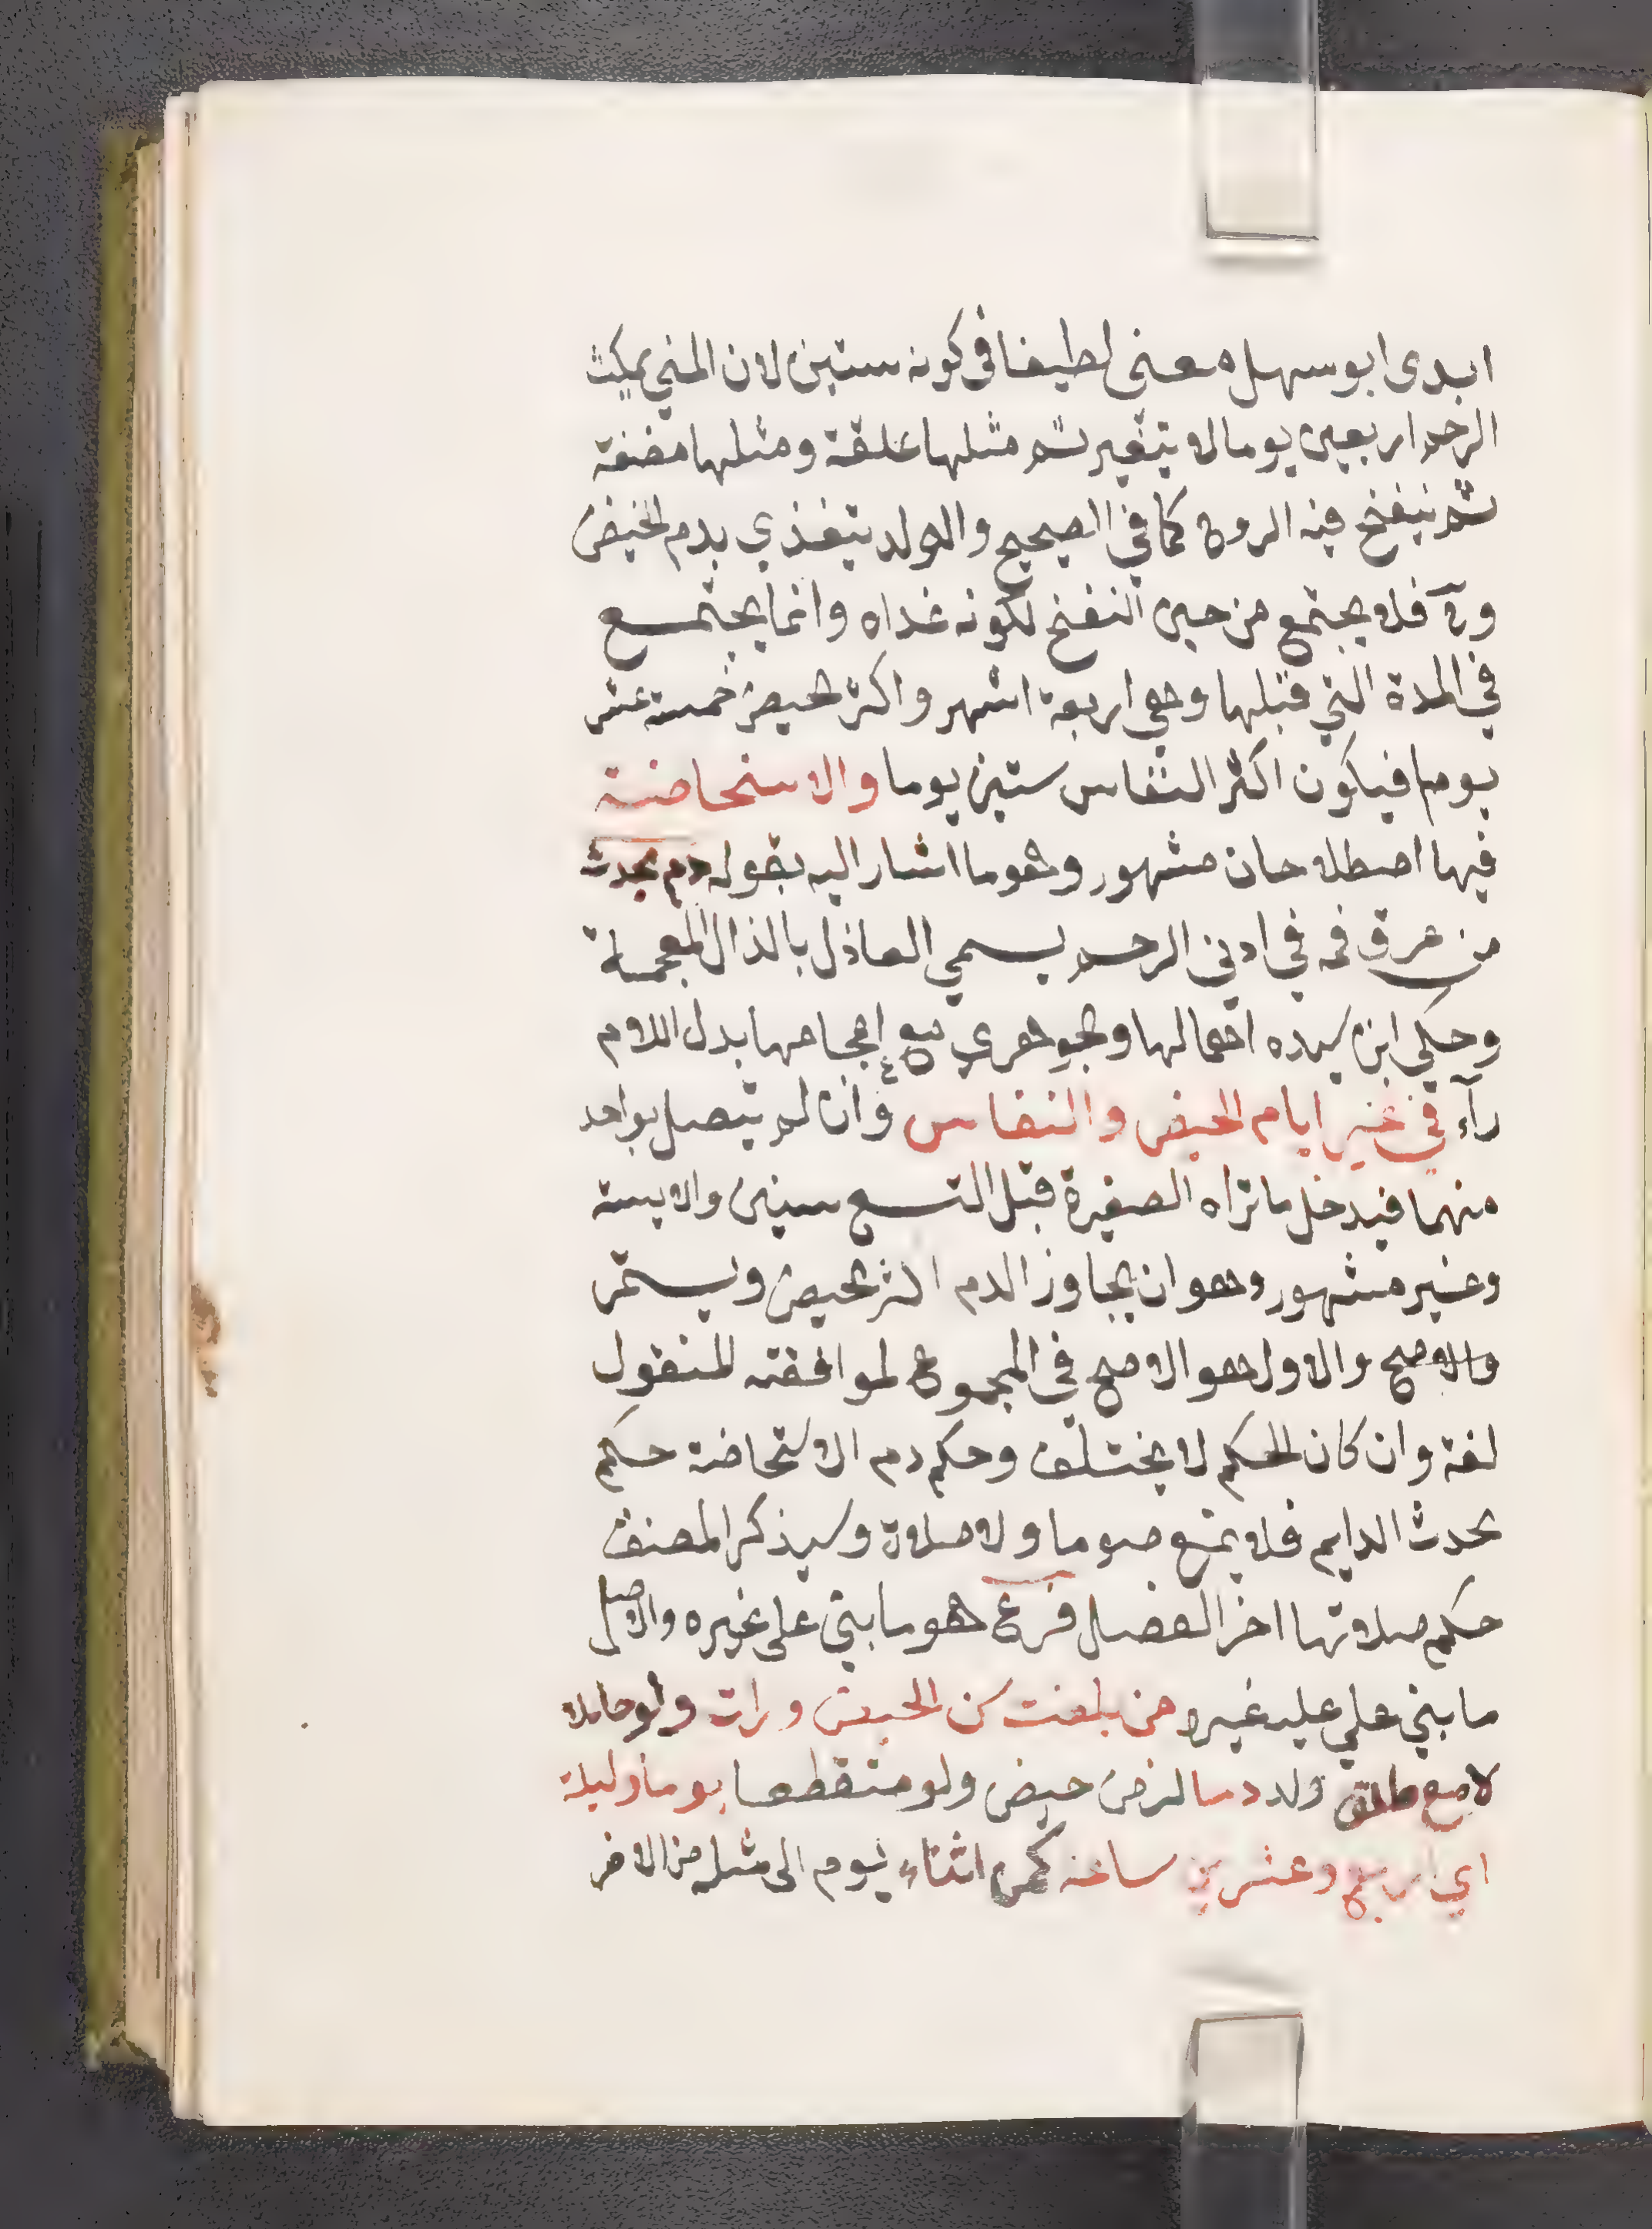 ابدى ابو سهل معنى لطيفا في كونه ستين لان المني يمكث
الرحم اربعين يوما لا يتغير ثم مثلها علقة ومثلها مضغة
ثم ينفخ فيه الروح كما في الصحيح والولد يتغذي بدم الحيض
وح فلا يجتمع من حين النفخ لكونه غذاه وانما يجتمع
في المدة التي قبلها وهي اربعة اشهر واكثر الحيض خمسة عشر
يوما فيكون اكثر النفاس ستين يوما والاستحاضة
فيها اصطلاحان مشهور وهو ما اشار اليه بقوله دم يحدث
من عرق فمه في ادني الرحم يسمي العاذل بالذال المعجمة
وحكي ابن سيده اهمالها والجوهري مع اعجامها بدل اللام
رآء في غير ايام الحيض والنفاس وان لم يتصل بواحد
منهما فيدخل ما تراه الصغيرة قبل التسع سنين والايسة
وغير مشهور وهو ان يجاوز الدم اكثر الحيض ويستمر
والاصح والاول هو الاصح في المجموع لموافقته للمنقول
لغة وان كان الحكم لا يختلف وحكم دم الاستحاضة حكم
الحدث الدايم فلا يمنع صوما ولا صلاة وسيذكر المصنف
حكم صلاتها اخر الفصل فرع هو ما بني على غيره والاصل
ما بني علي عليه غيره من بلغت سن الحيض ورات ولو حاملا
لا مع طلق ولد دما لزمن حيض ولو متقطعا يوما وليلة
اي اربع وعشرين ساعة كمن اثناء يوم الى مثله من الاخر